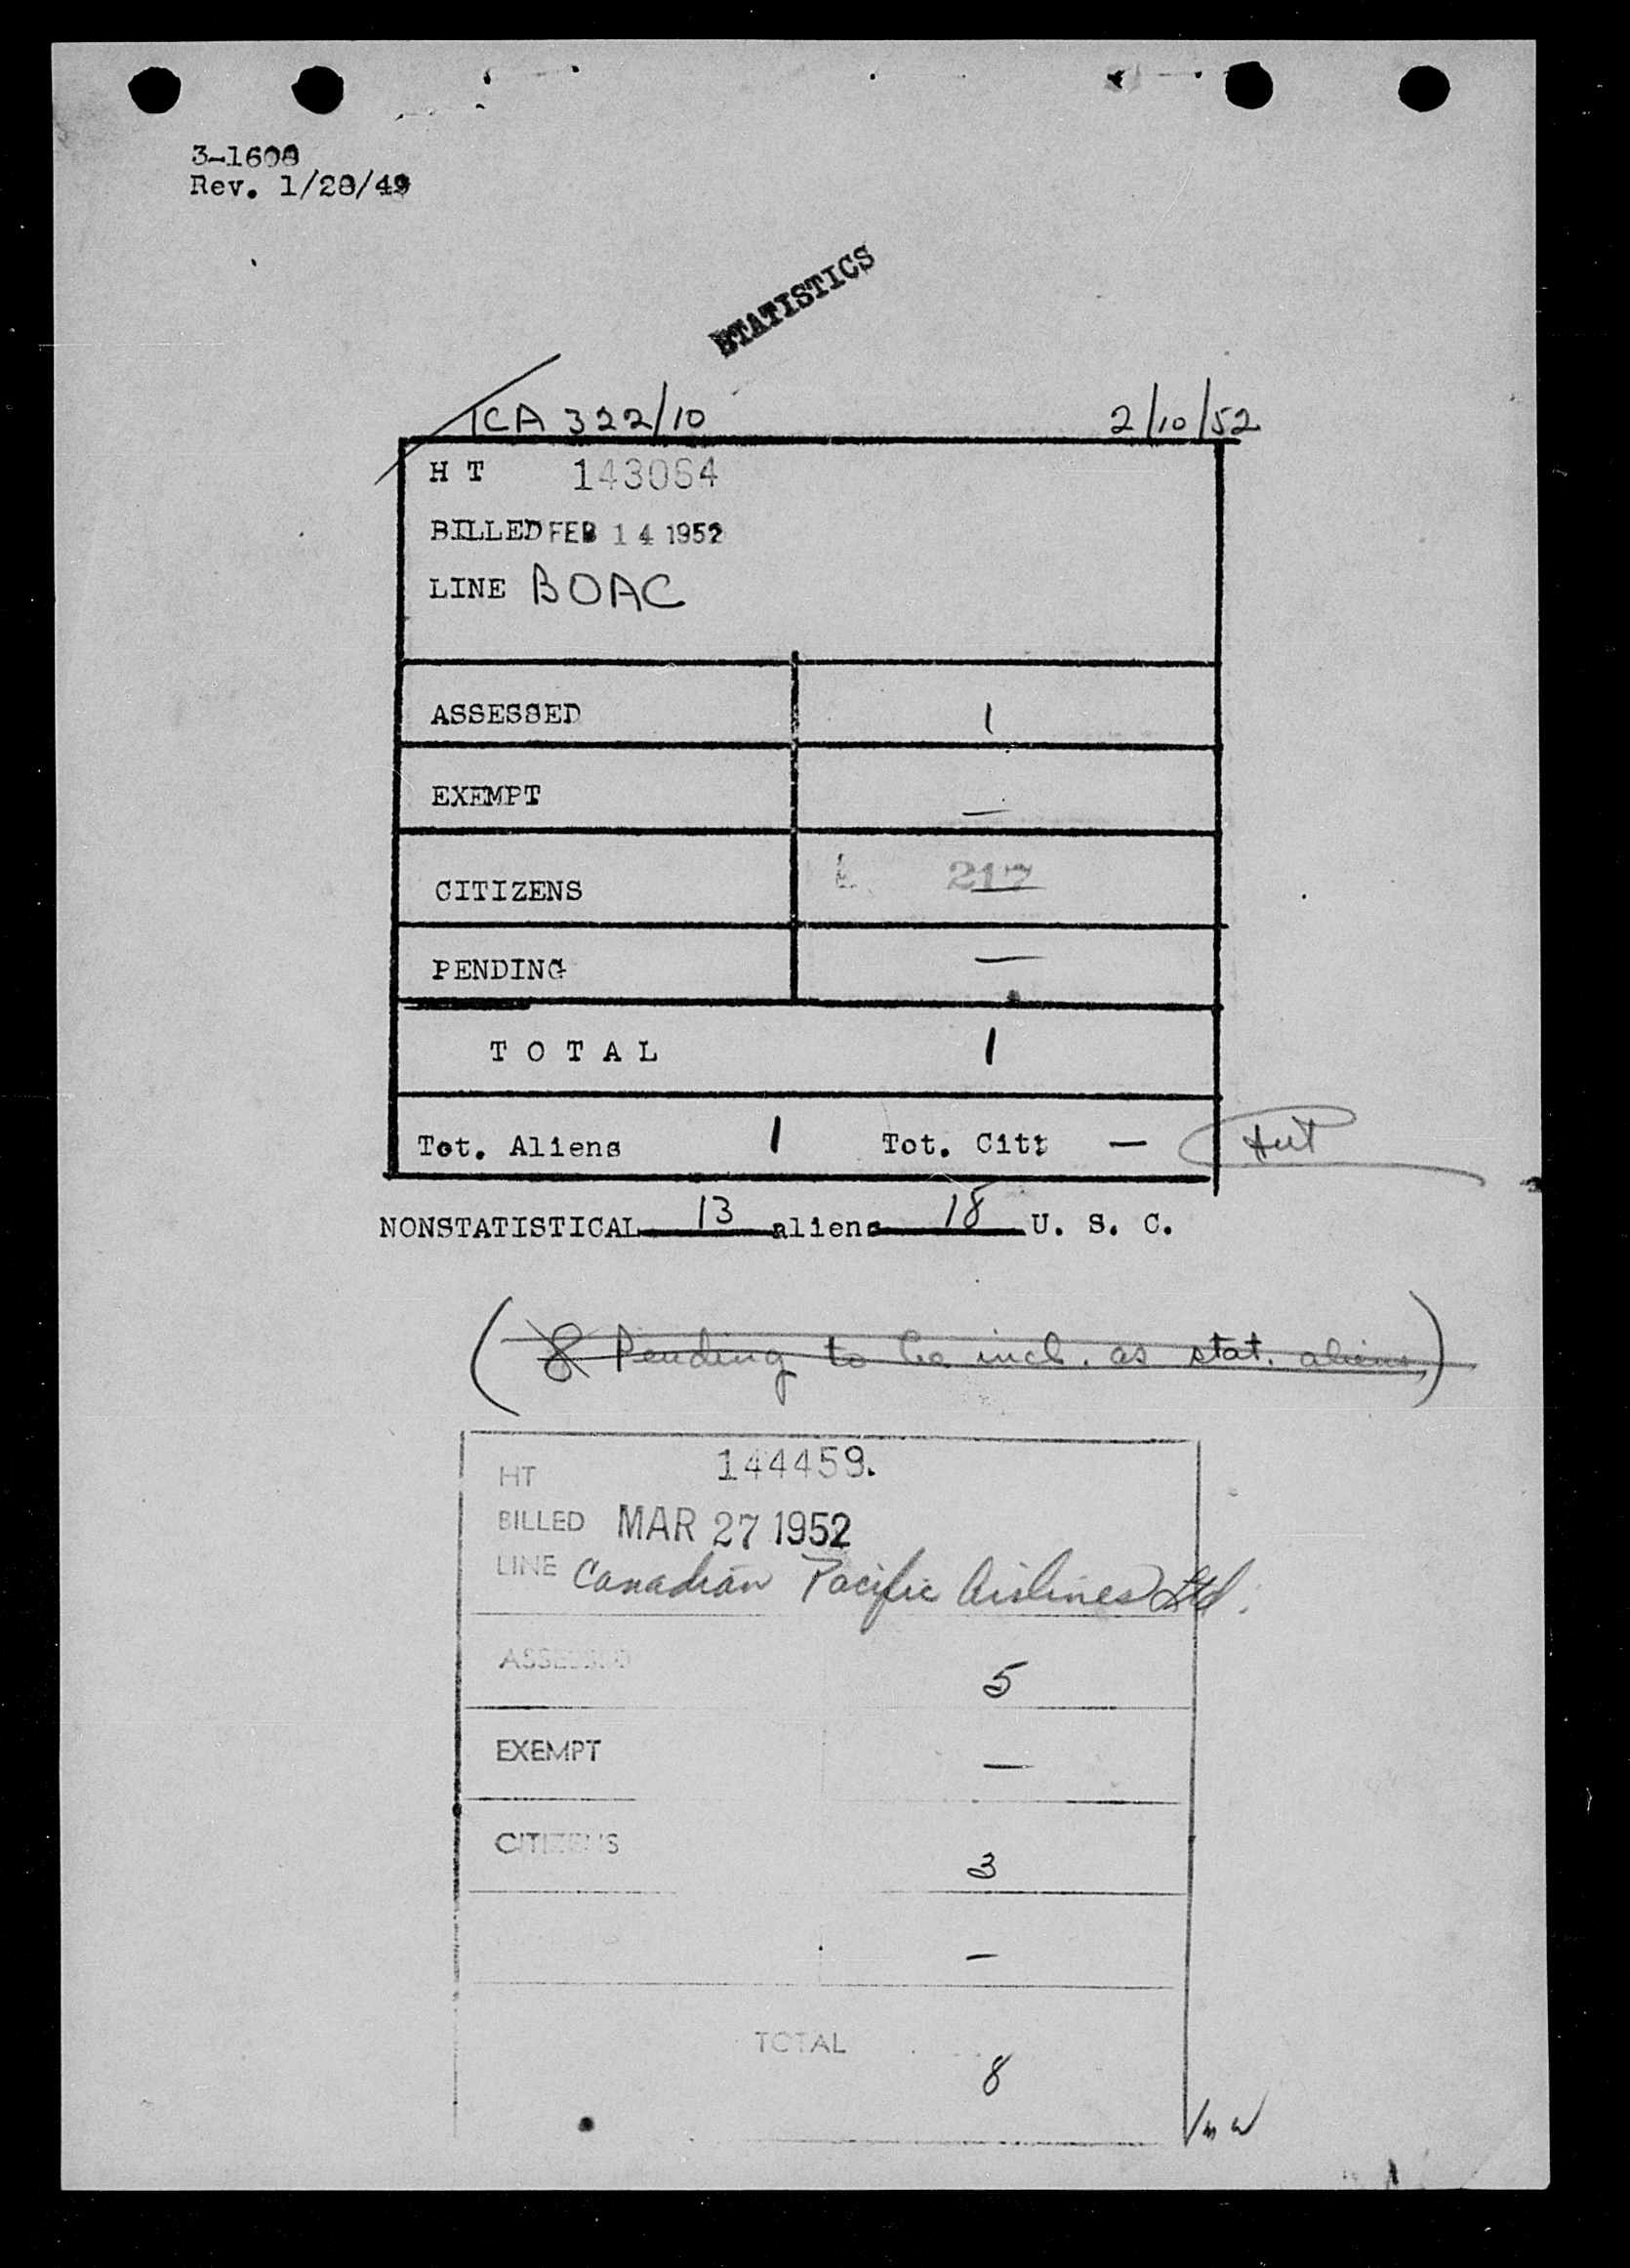 3-1608
Rev. 1/28/49
STATISTICS
TCA 322/10 2/10/52
H T 143064
BILLED FEB 14 1952
LINE BOAC
ASSESSED 1
EXEMPT —
CITIZENS 217
PENDING —
T O T A L 1
Tot. Aliens 1 Tot. Citz —
NONSTATISTICAL 13 aliens 18 U. S. C.
(8 Pending to be incl. as stat. aliens)
HT 144459.
BILLED MAR 27 1952
LINE Canadian Pacific Airlines Ltd.
ASSESSED 5
EXEMPT —
CITIZENS 3
—
TOTAL 8